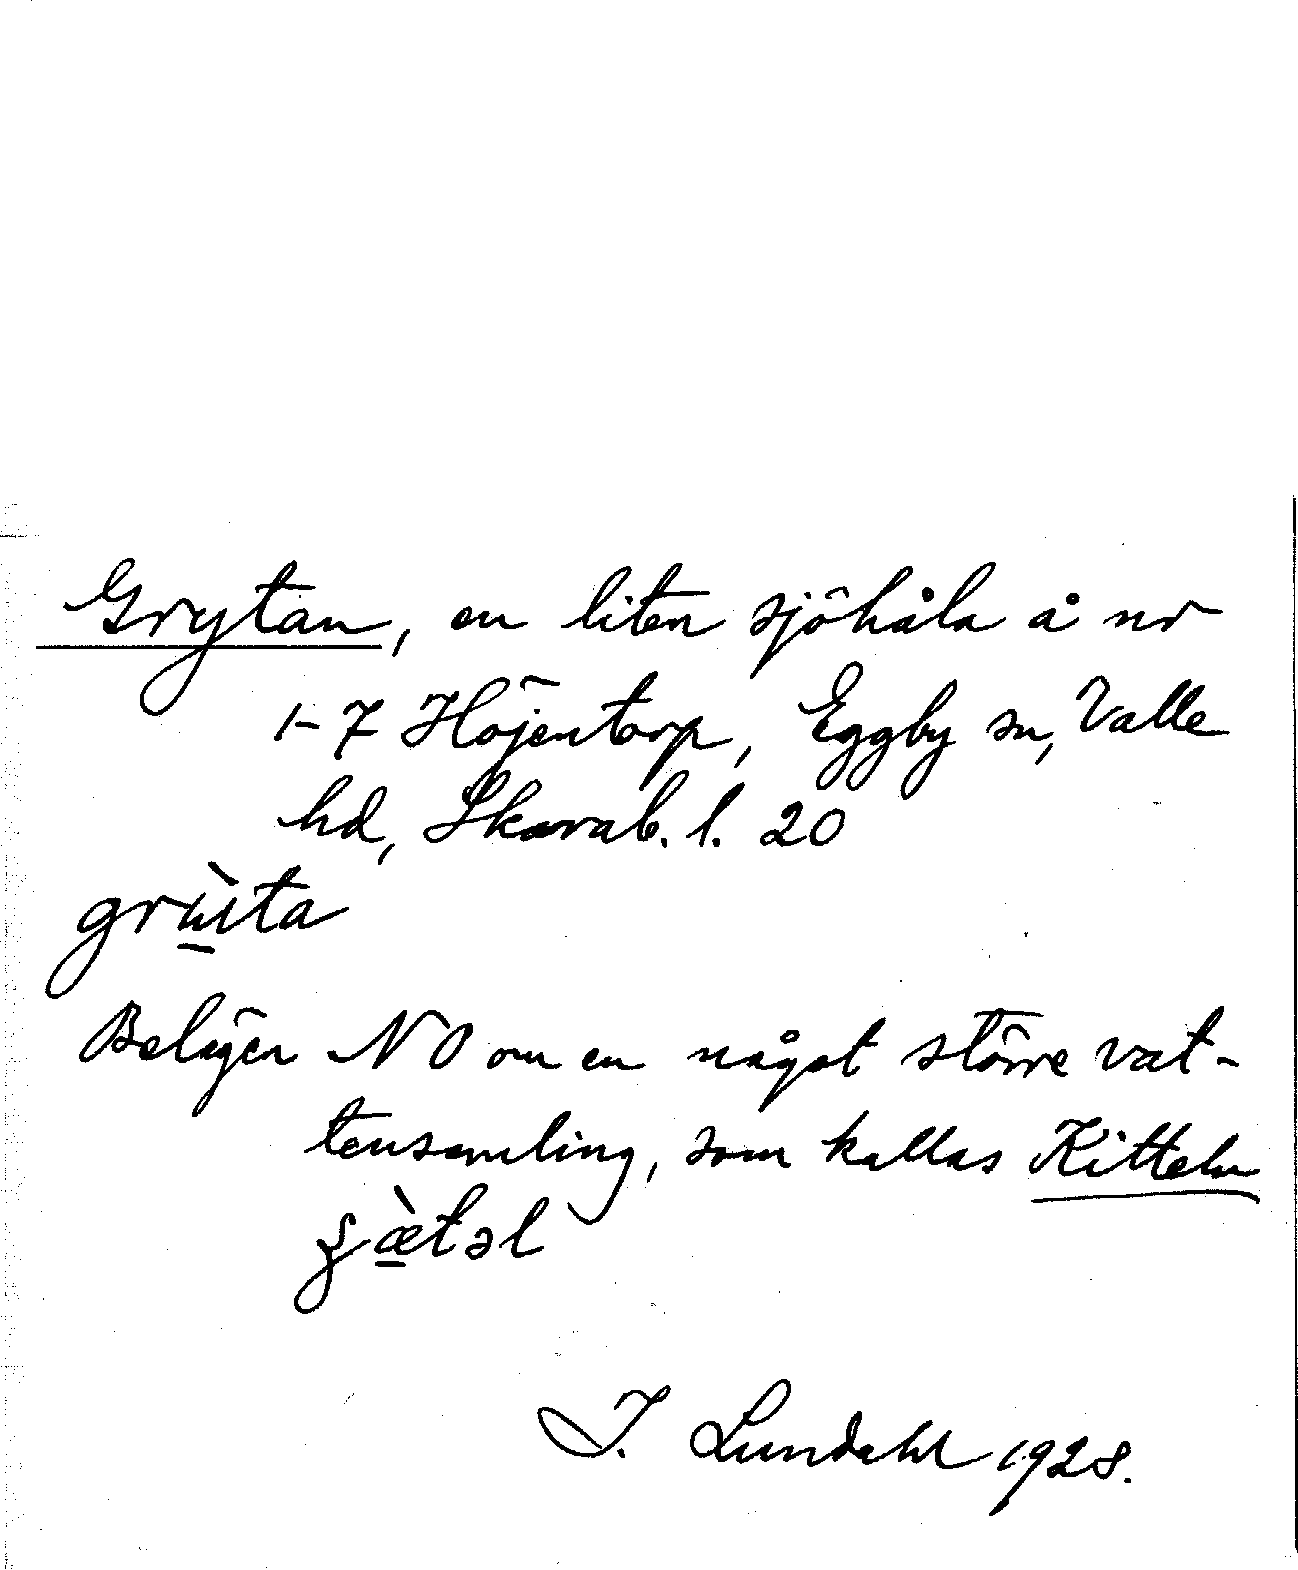 Grytan, en liten sjöhåla å nr
1-7 Höjentorp, Eggby sn, Valle
hd, Skarab. l. 20
Belägen NO om en något större vat-
tensamling, som kallas Kitteln
I. Lundahl 1928.